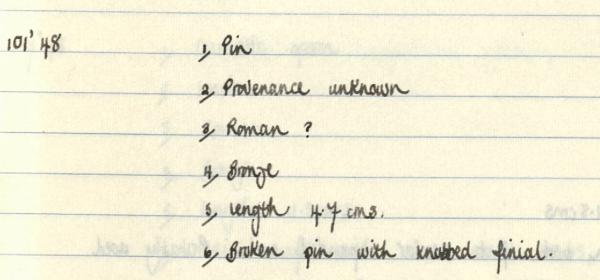 101' 48
1, Pin
2, Provenance unknown
3, Roman ?
4, Bronze
5, Length 4.7 cms.
6, Broken pin with knobbed finial.